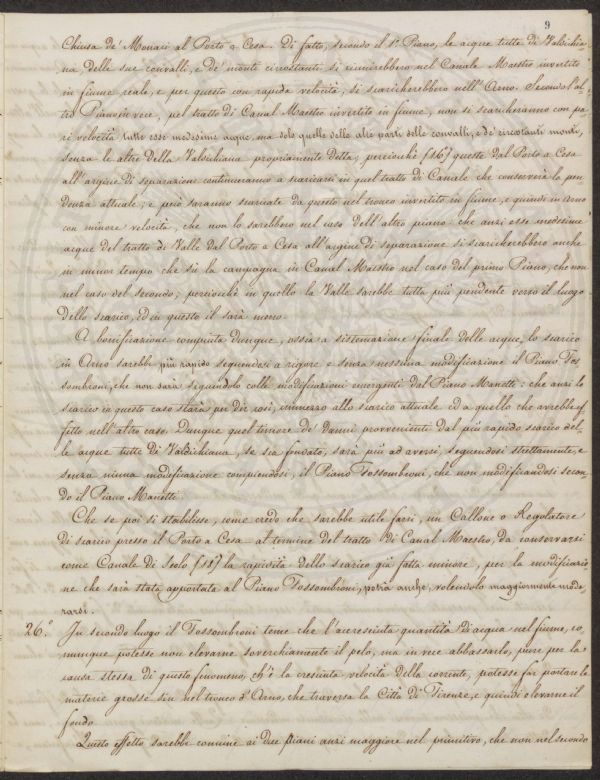 9
Chiusa de' Monaci al Porto a Cesa. Di fatto, secondo il 1º Piano, le acque tutte di Valdichia-
na, delle sue convalli, e de' monti circostanti si riunirebbero nel Canale Maestro invertito
in fiume reale, e per questo con rapida velocità, si scaricherebbero nell'Arno. Secondo l'al-
tro Piano invece, pel tratto di Canal Maestro invertito in fiume, non si scaricheranno con pa-
ri velocità tutte esse medesime acque, ma solo quelle delle altre parti delle convalli, e de' circostanti monti,
senza le altre della Valdichiana propriamente detta; perciocchè (§16) queste dal Porto a Cesa
all'argine di separazione continueranno a scaricarsi in quel tratto di Canale che conserverà la pen-
denza attuale; e però saranno scaricate da questo nel tronco invertito in fiume, e quindi in Arno
con minore velocità, che non lo sarebbero nel caso dell'altro piano: che anzi esse medesime
acque del tratto di Valle dal Porto a Cesa all'argine di separazione si scaricherebbero anche
in minor tempo che su la campagna in Canal Maestro nel caso del primo Piano, che non
nel caso del secondo; perciocchè in quello la Valle sarebbe tutta più pendente verso il luogo
dello scarico, ed in questo il sarà meno.
A bonificazione compiuta dunque, ossia a sistemazione finale delle acque, lo scarico
in Arno sarebbe più rapido seguendosi a rigore e senza nessuna modificazione il Piano Fos-
sombroni, che non sarà seguendolo colle modificazioni emergenti dal Piano Manetti: che anzi lo
scarico in questo caso starà per dir così, in mezzo allo scarico attuale ed a quello che avrebbe ef-
fetto nell'altro caso. Dunque quel timore de' danni provenienti dal più rapido scarico del-
le acque tutte di Valdichiana, se sia fondato, sarà più ad aversi, seguendosi strettamente, e
senza niuna modificazione compiendosi, il Piano Fossombroni, che non modificandosi secon-
do il Piano Manetti.
Che se poi si stabilisse, come credo che sarebbe utile farsi, un Callone o Regolatore
di scarico presso il Porto a Cesa al termine del tratto di Canal Maestro, da conservarsi
come Canale di scolo (§8) la rapidità dello scarico già fatta minore, per la modificazio-
ne che sarà stata apportata al Piano Fossombroni, potrà anche, volendolo maggiormente mode-
rarsi.
26.º In secondo luogo il Fossombroni teme che l'accresciuta quantità di acqua nel fiume, co-
munque potesse non elevarne soverchiamente il pelo, ma in vece abbassarlo, pure per la
causa stessa di questo fenomeno, ch'è la cresciuta velocità della corrente, potesse far portare le
materie grosse sin nel tronco d'Arno, che traversa la Città di Firenze, e quindi elevarne il
fondo.
Questo effetto sarebbe comune ai due piani anzi maggiore nel primitivo, che non nel secondo